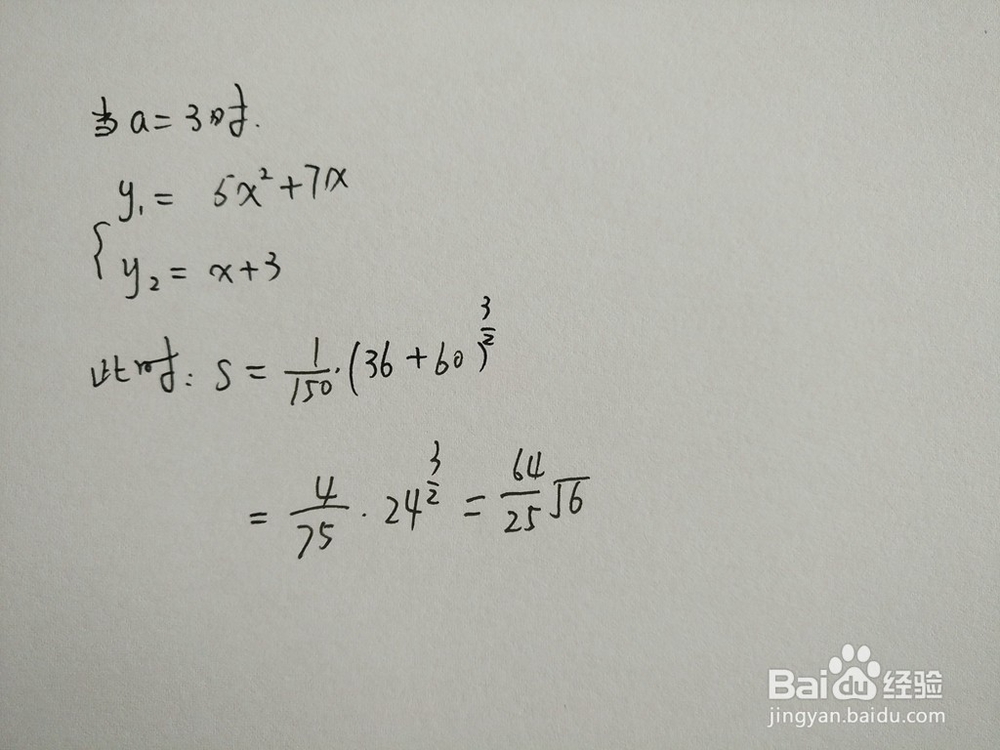 当a=3时.
y₁ = 5x²+7x
y₂ = x+3
此时: S = 1/150·(36+60)^(3/2)
= 4/75 · 24^(3/2) = 64/25 √6
Baidu 经验
jingyan.baidu.com